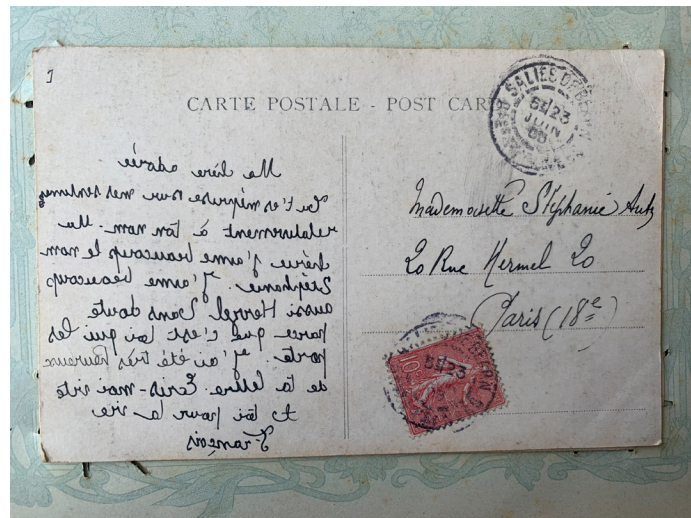 CARTE POSTALE - POST CARD
SALIES DE BEARN
23
JUIN
Ma chère adorée
Tu t'es méprise sur mes sentiments
relativement à ton nom. Ma
chérie j'aime beaucoup le nom
Stéphanie. J'aime beaucoup
aussi sans doute
parce que c'est toi qui les
porte. J'ai été très heureuse
de ta lettre. Ecris-moi vite
toi pour la vie
François
Mademoiselle Stéphanie
20 Rue Hermel 20
Paris (18e)
10